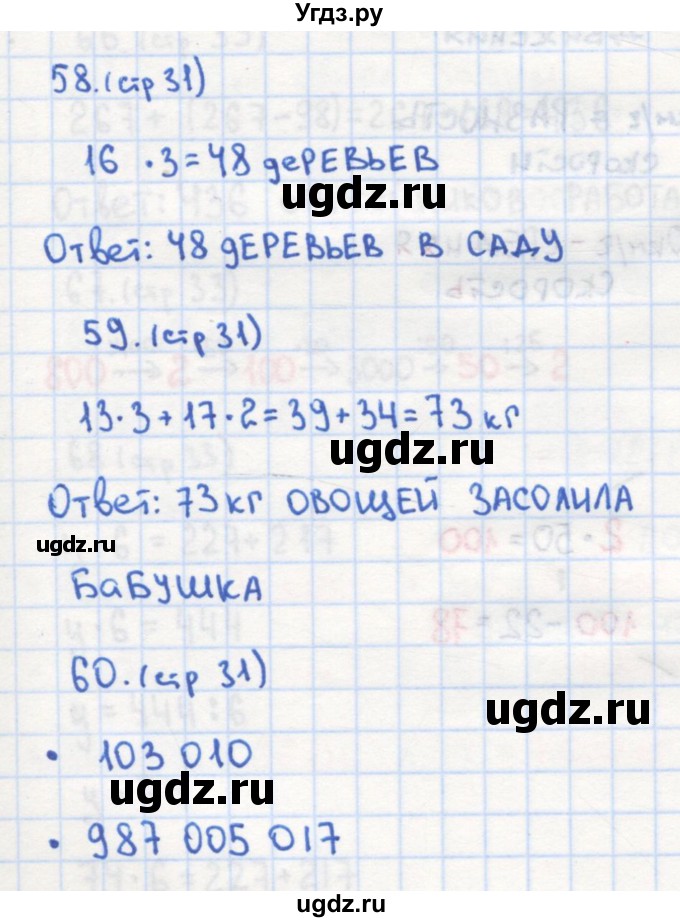 Угдз.ру
58.(стр 31)
16 · 3 = 48 деРЕВЬЕВ
ugdz.ru
Ответ: 48 дЕРЕВЬЕВ В САДУ
59.(стр 31)
13·3 + 17·2 = 39 + 34 = 73 кг
ugdz.ru
Ответ: 73 кг ОВОЩЕЙ ЗАСОЛИЛА
ugdz.ru
БаБУШКА
60.(стр 31)
ugdz.ru
• 103 010
ugdz.ru
• 987 005 017
ugdz.ru